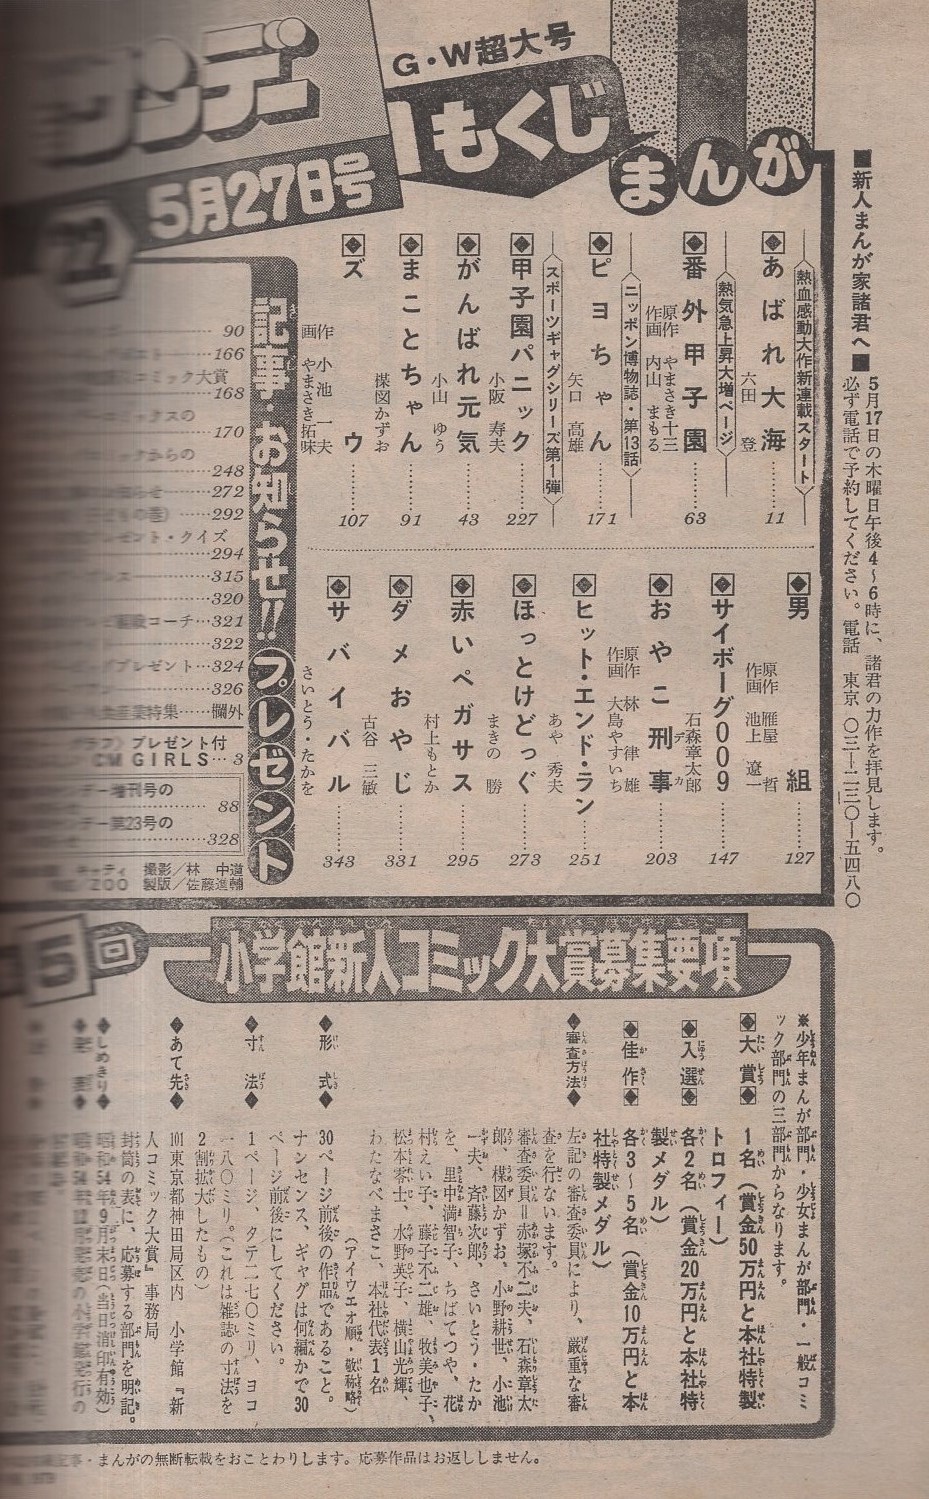 ■新人まんが家諸君へ■
5月17日の木曜日午後4〜6時に、諸君の力作を拝見します。
必ず電話で予約してください。電話 東京 〇三―二三〇―五四八〇
サンデー
5月27日号
22
G・W超大号
もくじ
まんが
熱血感動大作新連載スタート
あばれ大海……11
六田 登
熱気急上昇大増ページ
番外甲子園……63
原作 やまさき十三
作画 内山 まもる
ニッポン博物誌・第13話
ピヨちゃん……171
矢口 高雄
スポーツギャグシリーズ第1弾
甲子園パニック……227
小阪 寿夫
がんばれ元気……43
小山 ゆう
まことちゃん……91
楳図かずお
ズウ……107
作 小池 一夫
画 やまさき拓味
男組……127
原作 雁屋 哲
作画 池上 遼一
サイボーグ009……147
石森章太郎
おやこ刑事……203
デカ
原作 林 律雄
作画 大島やすいち
ヒット・エンド・ラン……251
あや 秀夫
ほっとけどっぐ……273
まきの 勝
赤いペガサス……295
村上もとか
ダメおやじ……331
古谷 三敏
サバイバル……343
さいとう・たかを
記事・お知らせ!!プレゼント
90
166
コミック大賞
168
170
からの
248
272
292
プレゼント・クイズ
294
315
320
コーチ…321
322
プレゼント…324
326
特集……欄外
プレゼント付
CM GIRLS…3
増刊号の
88
第23号の
328
撮影/林 中道
ZOO 製版/佐藤進輔
5回
小学館新人コミック大賞募集要項
※少年まんが部門・少女まんが部門・一般コミ
ック部門の三部門からなります。
◆大賞◆ 1名(賞金50万円と本社特製
トロフィー)
◆入選◆ 各2名(賞金20万円と本社特
製メダル)
◆佳作◆ 各3〜5名(賞金10万円と本
社特製メダル)
◆審査方法◆ 左記の審査委員により、厳重な審
査を行ないます。
審査委員=赤塚不二夫、石森章太
郎、楳図かずお、小野耕世、小池
一夫、斉藤次郎、さいとう・たか
を、里中満智子、ちばてつや、花
村えい子、藤子不二雄、牧美也子、
松本零士、水野英子、横山光輝、
わたなべまさこ、本社代表1名
(アイウエオ順・敬称略)
◆形式◆ 30ページ前後の作品であること。
ナンセンス、ギャグは何編かで30
ページ前後にしてください。
◆寸法◆ 1ページ、タテ二七〇ミリ、ヨコ
一八〇ミリ。(これは雑誌の寸法を
2割拡大したもの)
◆あて先◆ 101東京都神田局区内 小学館『新
人コミック大賞』事務局
封筒の表に、応募する部門を明記。
◆しめきり◆ 昭和54年9月末日(当日消印有効)
まんがの無断転載をおことわりします。応募作品はお返ししません。